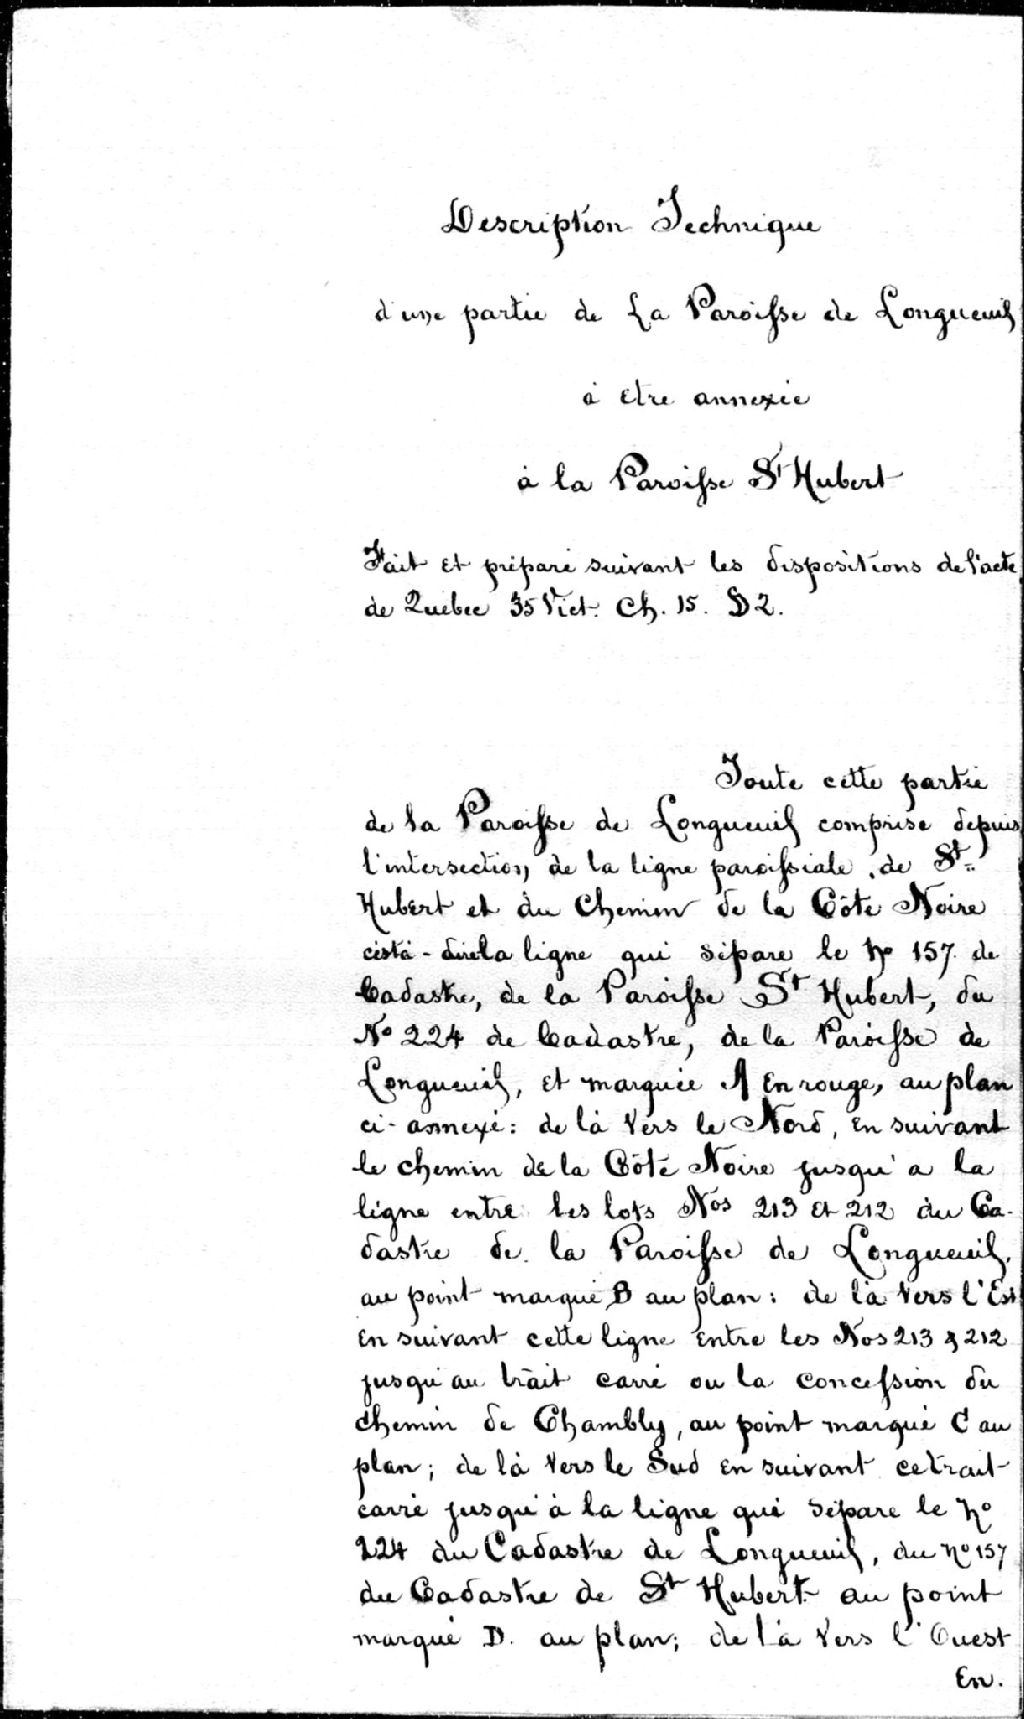 Description Technique
d'une partie de La Paroisse de Longueuil
à etre annexée
à la Paroisse St Hubert
Fait et préparé suivant les dispositions de l'acte
de Quebec 35 Vict. Ch. 15. S 2.
Toute cette partie
de la Paroisse de Longueuil comprise depuis
l'intersection, de la ligne paroissiale, de St=
Hubert et du Chemin de la Côte Noire
cestà-dire la ligne qui sépare le No 157 de
Cadastre, de la Paroisse St Hubert, du
No 224 de Cadastre, de la Paroisse de
Longueuil, et marquée A En rouge, au plan
ci-annexé: de là Vers le Nord, en suivant
le chemin de la Côte Noire jusqu'a la
ligne entre les lots Nos 213 et 212 du Ca-
dastre de la Paroisse de Longueuil,
au point marqué B au plan: de là Vers l'Est
En suivant cette ligne Entre les Nos 213 & 212
jusqu'au trait carré ou la concession du
chemin de Chambly, au point marqué C au
plan; de là Vers le Sud en suivant ce trait
carré jusqu'à la ligne qui sépare le No
224 du Cadastre de Longueuil, du No 157
du Cadastre de St Hubert au point
marqué D. au plan; de là Vers l'Ouest
En.